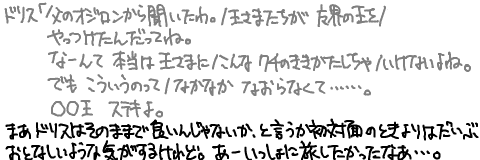 ドリス「父のオジロンから聞いたわ。/王さまたちが 魔界の王を/
やっつけたんだってね。
なーんて 本当は王さまに/こんな クチのききかたしちゃ/いけないよね。
でも こういうのって/なかなか なおらなくて……。
○○王 ステキよ。
まあドリスはそのままで良いんじゃないか、と言うか初対面のときよりはだいぶ
おとなしいような気がするけれど。あーいっしょに旅したかったなあ…。